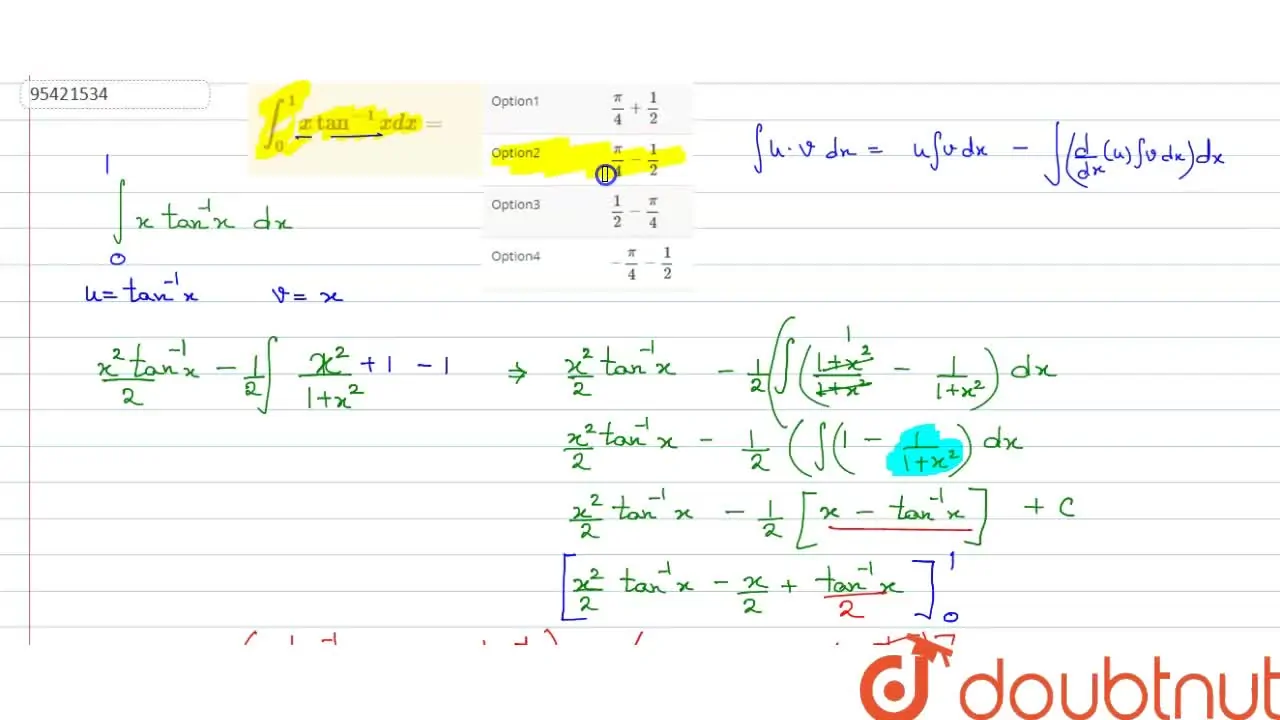 95421534
∫₀¹ x tan⁻¹ xdx =
Option1 π/4 + 1/2
Option2 π/4 − 1/2
Option3 1/2 − π/4
Option4 −π/4 − 1/2
∫u·v dx = u∫v dx − ∫(d/dx (u) ∫v dx) dx
∫₀¹ x tan⁻¹x dx
u = tan⁻¹x v = x
x² tan⁻¹x / 2 − 1/2 ∫ x² + 1 − 1 / 1+x² ⇒ x²/2 tan⁻¹x − 1/2 (∫(1+x²/1+x² 1 − 1/1+x²) dx
x²/2 tan⁻¹x − 1/2 (∫(1 − 1/1+x²) dx
x²/2 tan⁻¹x − 1/2 [x − tan⁻¹x] + C
[x²/2 tan⁻¹x − x/2 + tan⁻¹x/2]₀¹
doubtnut